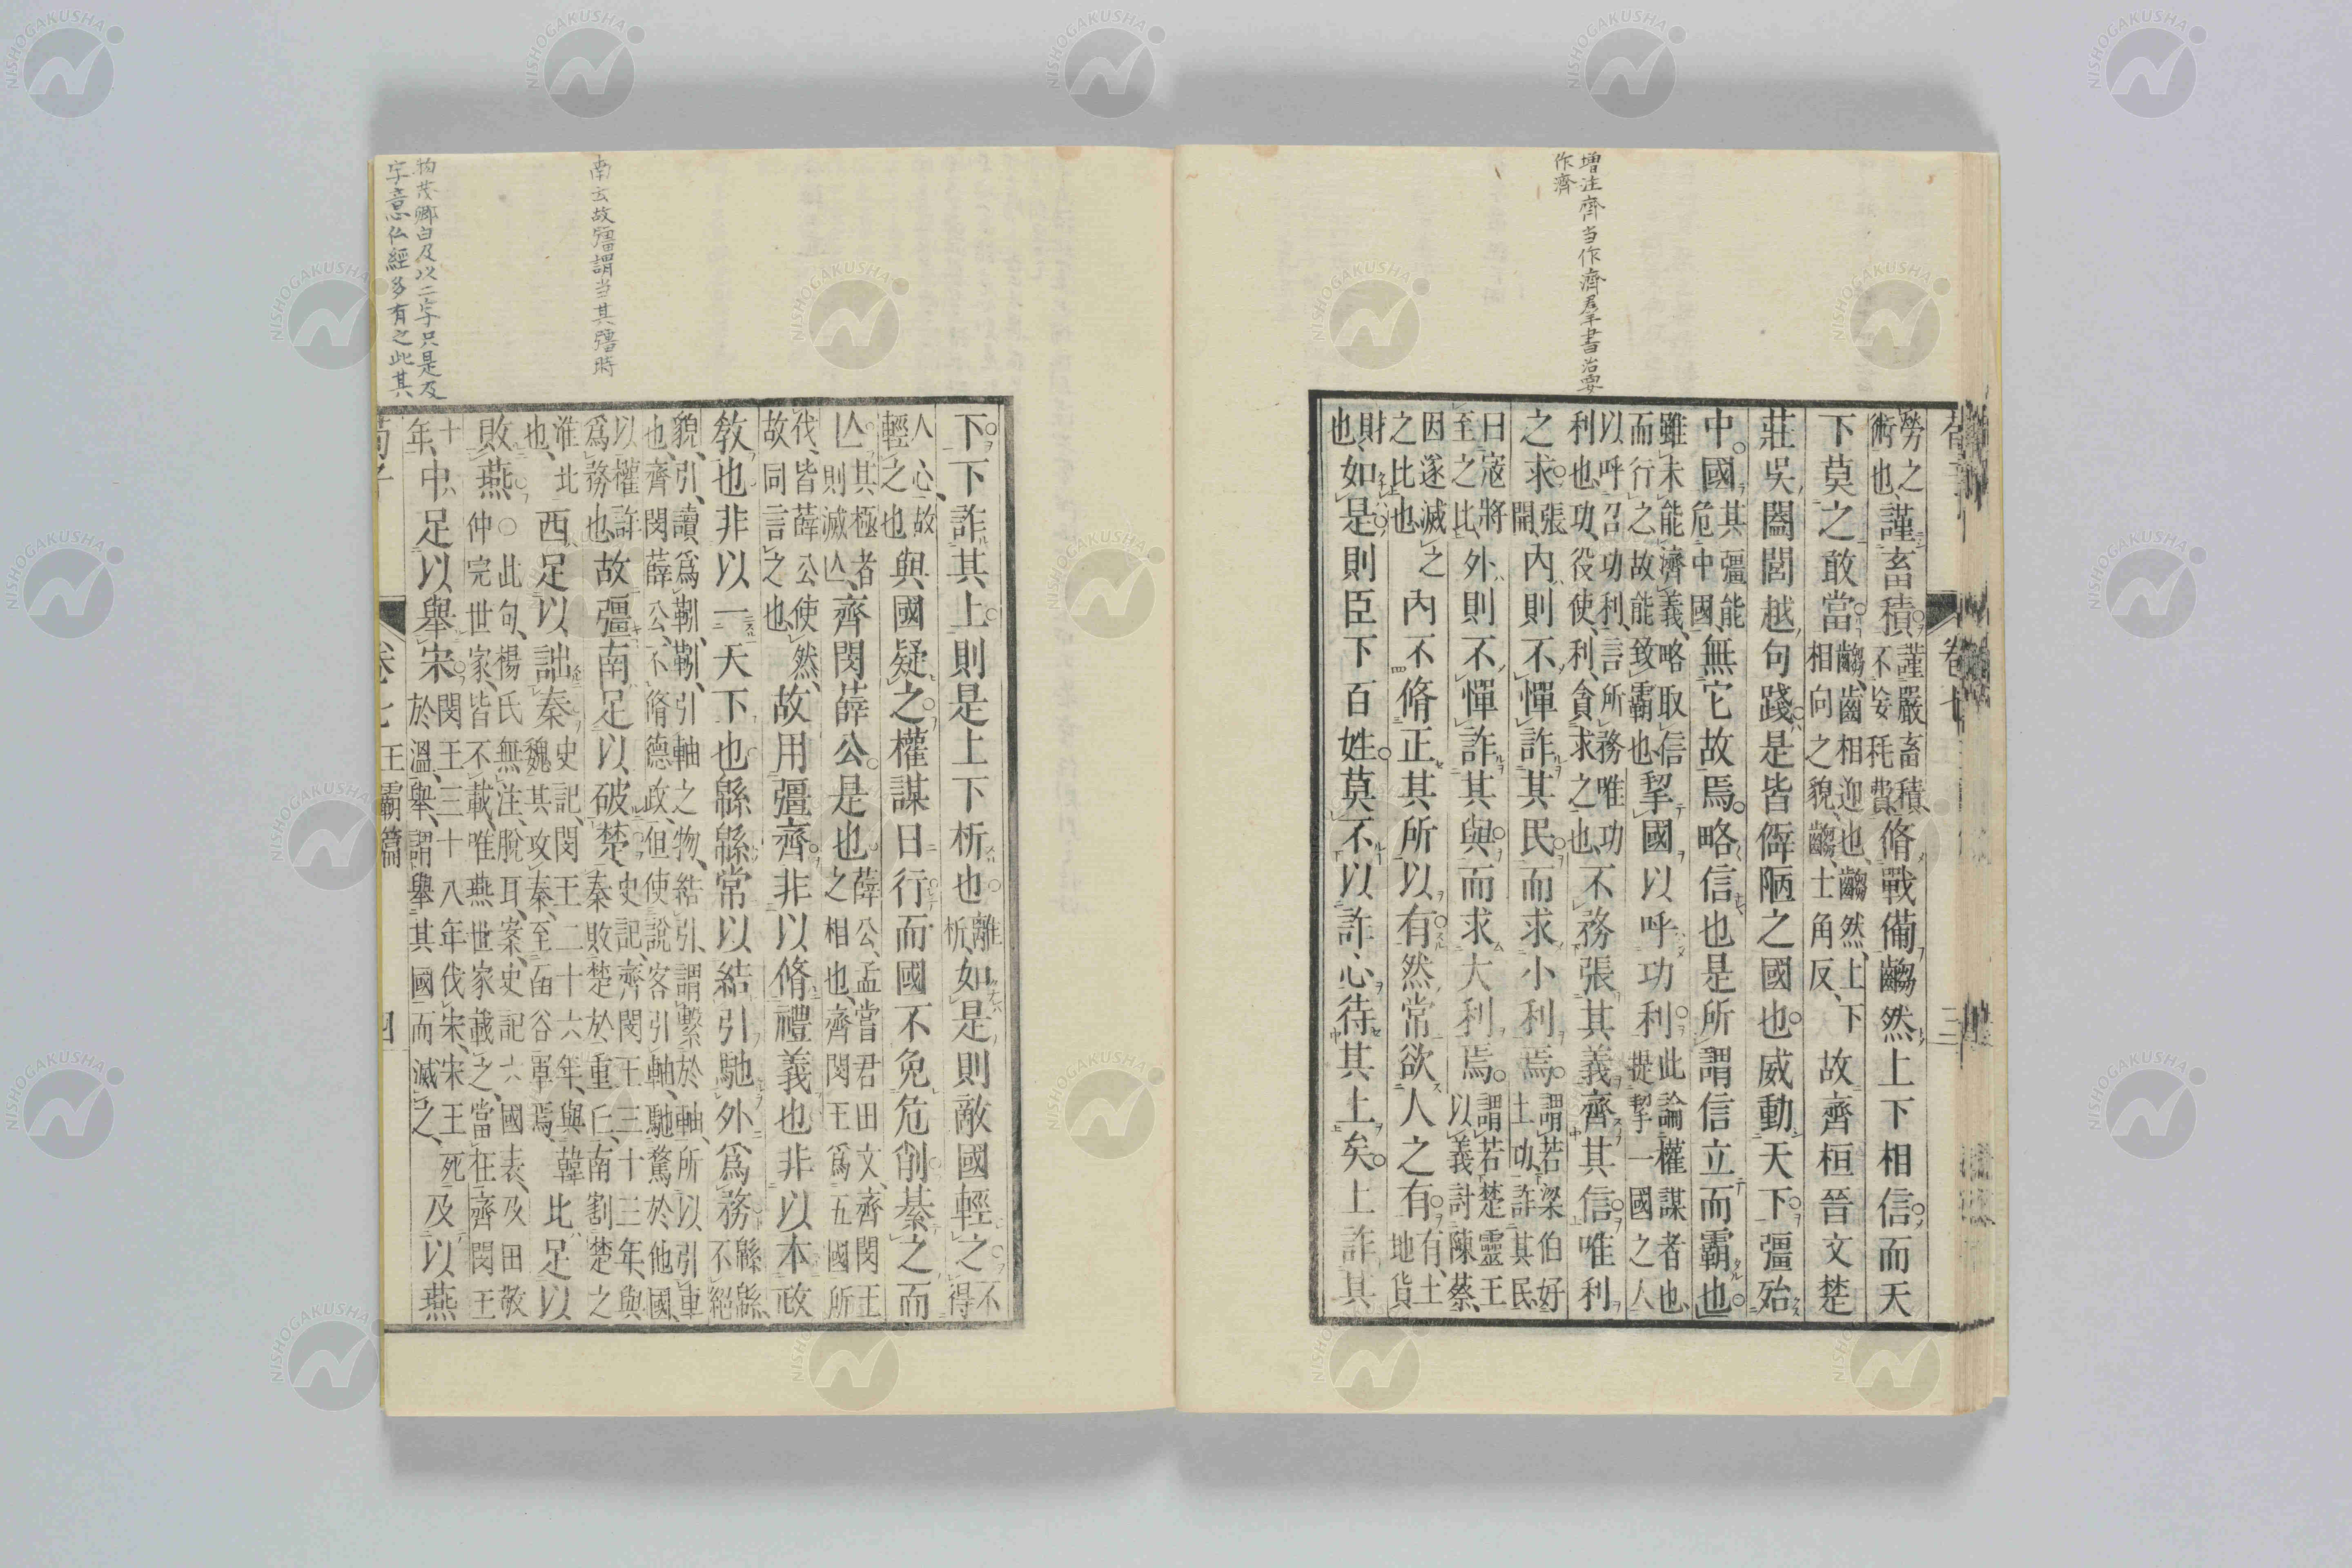 増注齊当作濟羣書治要
作濟
荀子 卷七 三
勞之
術也、
謹畜積
謹嚴畜積、
不妄耗費、
脩戰備齺然上下相信而天
下莫之敢當
齺、齒相迎也、齺然、上下
相向之貌、齺、士角反、
故齊桓晉文楚
莊吳闔閭越句踐是皆僻陋之國也威動天下彊殆
中國
其彊能
危中國
無它故焉略信也是所謂信立而霸也
雖未能濟義、略取信
而行之故能致霸也
挈國以呼功利
此論權謀者也、
提挈一國之人
以呼召功利、言所務唯功
利也、功、役使、利、貪求之也、
不務張其義齊其信唯利
之求
張
開
內則不憚詐其民而求小利焉
謂若梁伯好
土功、詐其民、
曰寇將
至之比、
外則不憚詐其與而求大利焉
謂若楚靈王
以義討陳蔡、
因遂滅之
之比也
內不脩正其所以有然常欲人之有
有、土
地貨
財
也
如是則臣下百姓莫不以詐心待其上矣上詐其
下下詐其上則是上下析也
離
析
如是則敵國輕之
不
得
人心、故
輕之也
與國疑之權謀日行而國不免危削綦之而
亾
其極者
則滅亾、
齊閔薛公是也
薛公、孟嘗君田文、齊閔王
之相也、齊閔王爲五國所
伐、皆薛公使然、
故同言之也、
故用彊齊非以脩禮義也非以本政
敎也非以一天下也緜緜常以結引馳外爲務
緜緜、
不絕
貌、引、讀爲靷、靷、引軸之物、結引、謂繫於軸、所以引車
也、齊閔薛公、不脩德政、但使說客引軸、馳騖於他國、
以權詐
爲務也、
故彊南足以破楚
史記、齊閔王三十三年、與
秦敗楚於重丘、南割楚之
淮北
也、
西足以詘秦
史記、閔王二十六年、與韓
魏其攻秦、至函谷軍焉、
北足以
敗燕
○此句、楊氏無注、脫耳、案、史記六國表、及田敬
仲完世家、皆不載、唯燕世家載之、當在齊閔王
十
年、
中足以舉宋
閔王三十八年伐宋、宋王死
於溫、舉、謂舉其國而滅之、
及以燕
南云故彊謂当其彊時
物茂卿曰及以二字只是及
字意仏經多有之此其
荀子 卷七 王霸篇 四
NISHOGAKUSHA